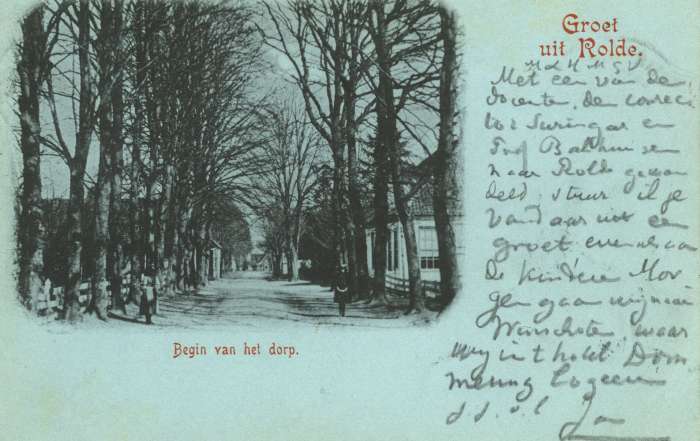 Groet
uit Rolde.
Met een van de
docente, den conrec
tor Suringar en
Prof Bakhuizen
naar Rolde gewan
deld stuur ik je
vandaar uit een
groet evenals aan
de kinderen Mor
gen gaan wij naar
Winschoten waar
wij in t hotel Dom
mering logeeren
Jan
Begin van het dorp.